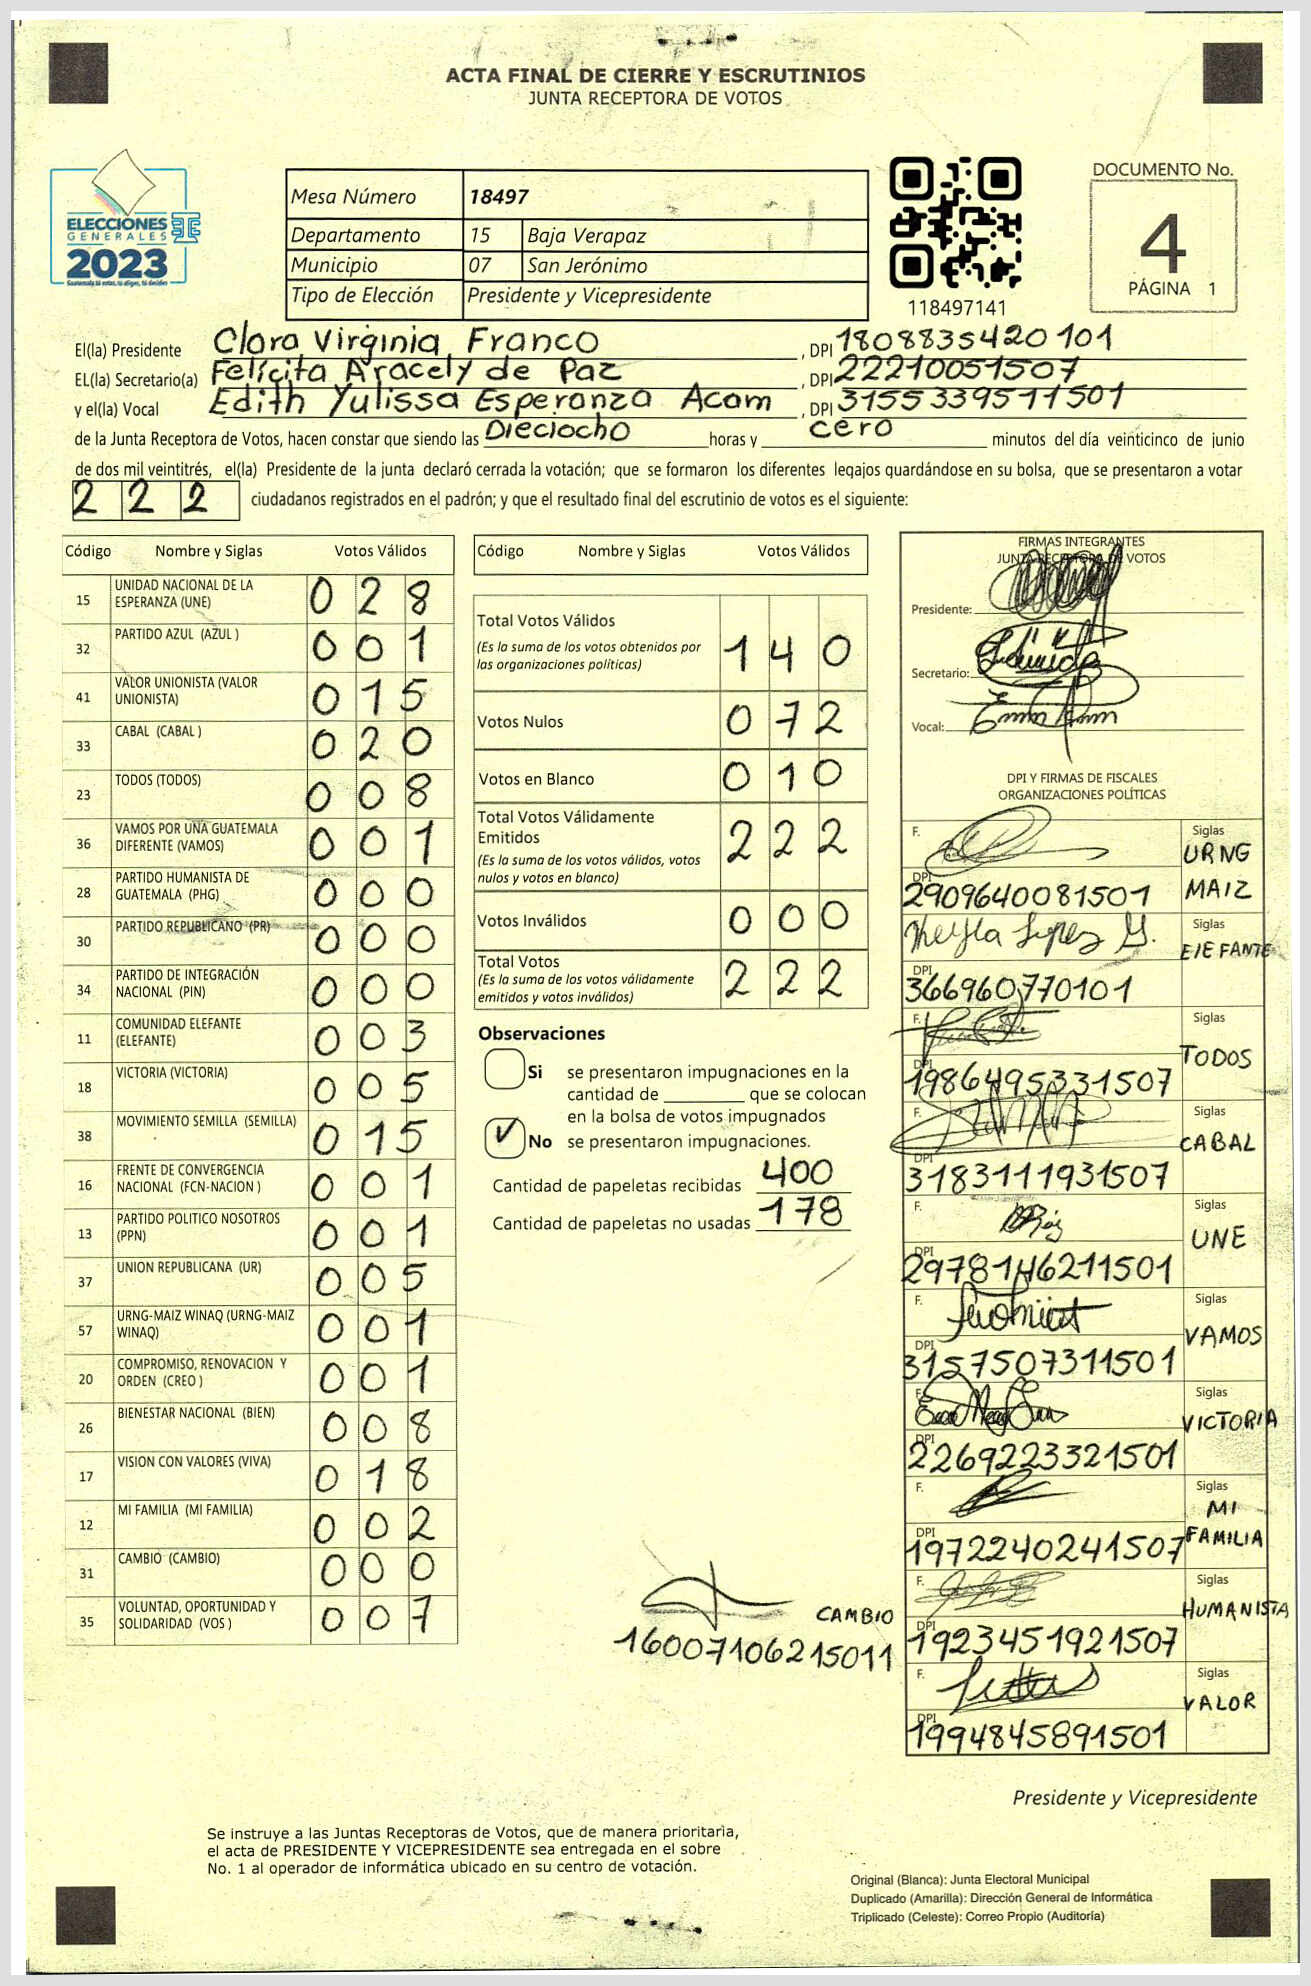 ACTA FINAL DE CIERRE Y ESCRUTINIOS
JUNTA RECEPTORA DE VOTOS
ELECCIONES
GENERALES
2023
Mesa Número 18497
Departamento 15 Baja Verapaz
Municipio 07 San Jerónimo
Tipo de Elección Presidente y Vicepresidente
118497141
DOCUMENTO No.
4
PÁGINA 1
El(la) Presidente Clara Virginia Franco , DPI 1808835420101
EL(la) Secretario(a) Felícita Aracely de Paz , DPI 22210051507
y el(la) Vocal Edith Yulissa Esperanza Acam , DPI 3155339511501
de la Junta Receptora de Votos, hacen constar que siendo las Dieciocho horas y cero minutos del día veinticinco de junio
de dos mil veintitrés, el(la) Presidente de la junta declaró cerrada la votación; que se formaron los diferentes legajos quardándose en su bolsa, que se presentaron a votar
2 2 2 ciudadanos registrados en el padrón; y que el resultado final del escrutinio de votos es el siguiente:
Código Nombre y Siglas Votos Válidos
15 UNIDAD NACIONAL DE LA ESPERANZA (UNE) 0 2 8
32 PARTIDO AZUL (AZUL ) 0 0 1
41 VALOR UNIONISTA (VALOR UNIONISTA) 0 1 5
33 CABAL (CABAL ) 0 2 0
23 TODOS (TODOS) 0 0 8
36 VAMOS POR UNA GUATEMALA DIFERENTE (VAMOS) 0 0 1
28 PARTIDO HUMANISTA DE GUATEMALA (PHG) 0 0 0
30 PARTIDO REPUBLICANO (PR) 0 0 0
34 PARTIDO DE INTEGRACIÓN NACIONAL (PIN) 0 0 0
11 COMUNIDAD ELEFANTE (ELEFANTE) 0 0 3
18 VICTORIA (VICTORIA) 0 0 5
38 MOVIMIENTO SEMILLA (SEMILLA) 0 1 5
16 FRENTE DE CONVERGENCIA NACIONAL (FCN-NACION ) 0 0 1
13 PARTIDO POLITICO NOSOTROS (PPN) 0 0 1
37 UNION REPUBLICANA (UR) 0 0 5
57 URNG-MAIZ WINAQ (URNG-MAIZ WINAQ) 0 0 1
20 COMPROMISO, RENOVACION Y ORDEN (CREO ) 0 0 1
26 BIENESTAR NACIONAL (BIEN) 0 0 8
17 VISION CON VALORES (VIVA) 0 1 8
12 MI FAMILIA (MI FAMILIA) 0 0 2
31 CAMBIO (CAMBIO) 0 0 0
35 VOLUNTAD, OPORTUNIDAD Y SOLIDARIDAD (VOS ) 0 0 7
Código Nombre y Siglas Votos Válidos
Total Votos Válidos
(Es la suma de los votos obtenidos por las organizaciones políticas) 1 4 0
Votos Nulos 0 7 2
Votos en Blanco 0 1 0
Total Votos Válidamente Emitidos
(Es la suma de los votos válidos, votos nulos y votos en blanco) 2 2 2
Votos Inválidos 0 0 0
Total Votos
(Es la suma de los votos válidamente emitidos y votos inválidos) 2 2 2
Observaciones
Si se presentaron impugnaciones en la
cantidad de ________ que se colocan
en la bolsa de votos impugnados
✓ No se presentaron impugnaciones.
Cantidad de papeletas recibidas 400
Cantidad de papeletas no usadas 178
CAMBIO
16007106215011
FIRMAS INTEGRANTES
JUNTA RECEPTORA DE VOTOS
Presidente:
Secretario:
Vocal:
DPI Y FIRMAS DE FISCALES
ORGANIZACIONES POLÍTICAS
F. Siglas
URNG
MAIZ
DPI 2909640081501
F. Siglas
ElEFANTE
DPI 366960770101
F. Siglas
TODOS
DPI 1986495331507
F. Siglas
CABAL
DPI 3183111931507
F. Siglas
UNE
DPI 2978146211501
F. Siglas
VAMOS
DPI 3157507311501
F. Siglas
VICTORIA
DPI 2269223321501
F. Siglas
MI
FAMILIA
DPI 1972240241507
F. Siglas
HUMANISTA
DPI 1923451921507
F. Siglas
VALOR
DPI 1994845891501
Presidente y Vicepresidente
Se instruye a las Juntas Receptoras de Votos, que de manera prioritaria,
el acta de PRESIDENTE Y VICEPRESIDENTE sea entregada en el sobre
No. 1 al operador de informática ubicado en su centro de votación.
Original (Blanca): Junta Electoral Municipal
Duplicado (Amarilla): Dirección General de Informática
Triplicado (Celeste): Correo Propio (Auditoría)